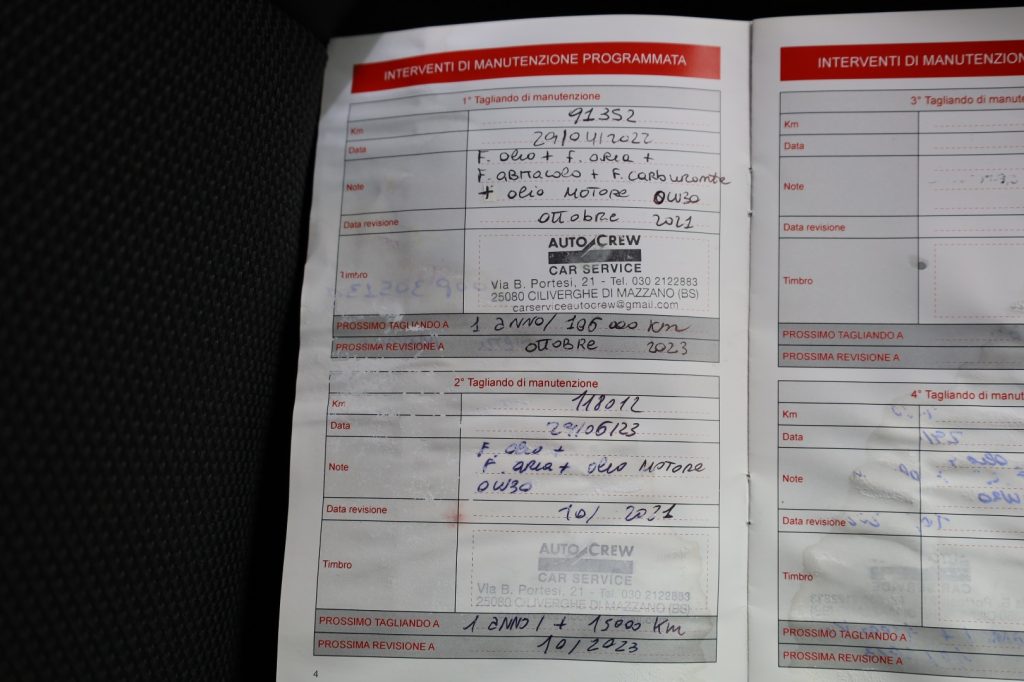 INTERVENTI DI MANUTENZIONE PROGRAMMATA
1° Tagliando di manutenzione
Km 91352
Data 29/04/2022
Note F. olio + f. aria +
F. abitacolo + F. carburante
+ olio MOTORE 0W30
Data revisione ottobre 2021
Timbro
AUTO CREW
CAR SERVICE
Via B. Portesi, 21 - Tel. 030 2122883
25080 CILIVERGHE DI MAZZANO (BS)
carserviceautocrew@gmail.com
PROSSIMO TAGLIANDO A 1 ANNO/ 106000 Km
PROSSIMA REVISIONE A ottobre 2023
2° Tagliando di manutenzione
Km 118012
Data 29/06/23
Note F. olio +
F. aria + olio MOTORE
0W30
Data revisione 10/ 2021
Timbro
AUTO CREW
CAR SERVICE
Via B. Portesi, 21 - Tel. 030 2122883
25080 CILIVERGHE DI MAZZANO (BS)
PROSSIMO TAGLIANDO A 1 ANNO / + 15000 Km
PROSSIMA REVISIONE A 10/2023
4
INTERVENTI DI MANUTENZION
3° Tagliando di manute
Km
Data
Note
Data revisione
Timbro
PROSSIMO TAGLIANDO A
PROSSIMA REVISIONE A
4° Tagliando di manut
Km
Data
Note
Data revisione
Timbro
PROSSIMO TAGLIANDO A
PROSSIMA REVISIONE A